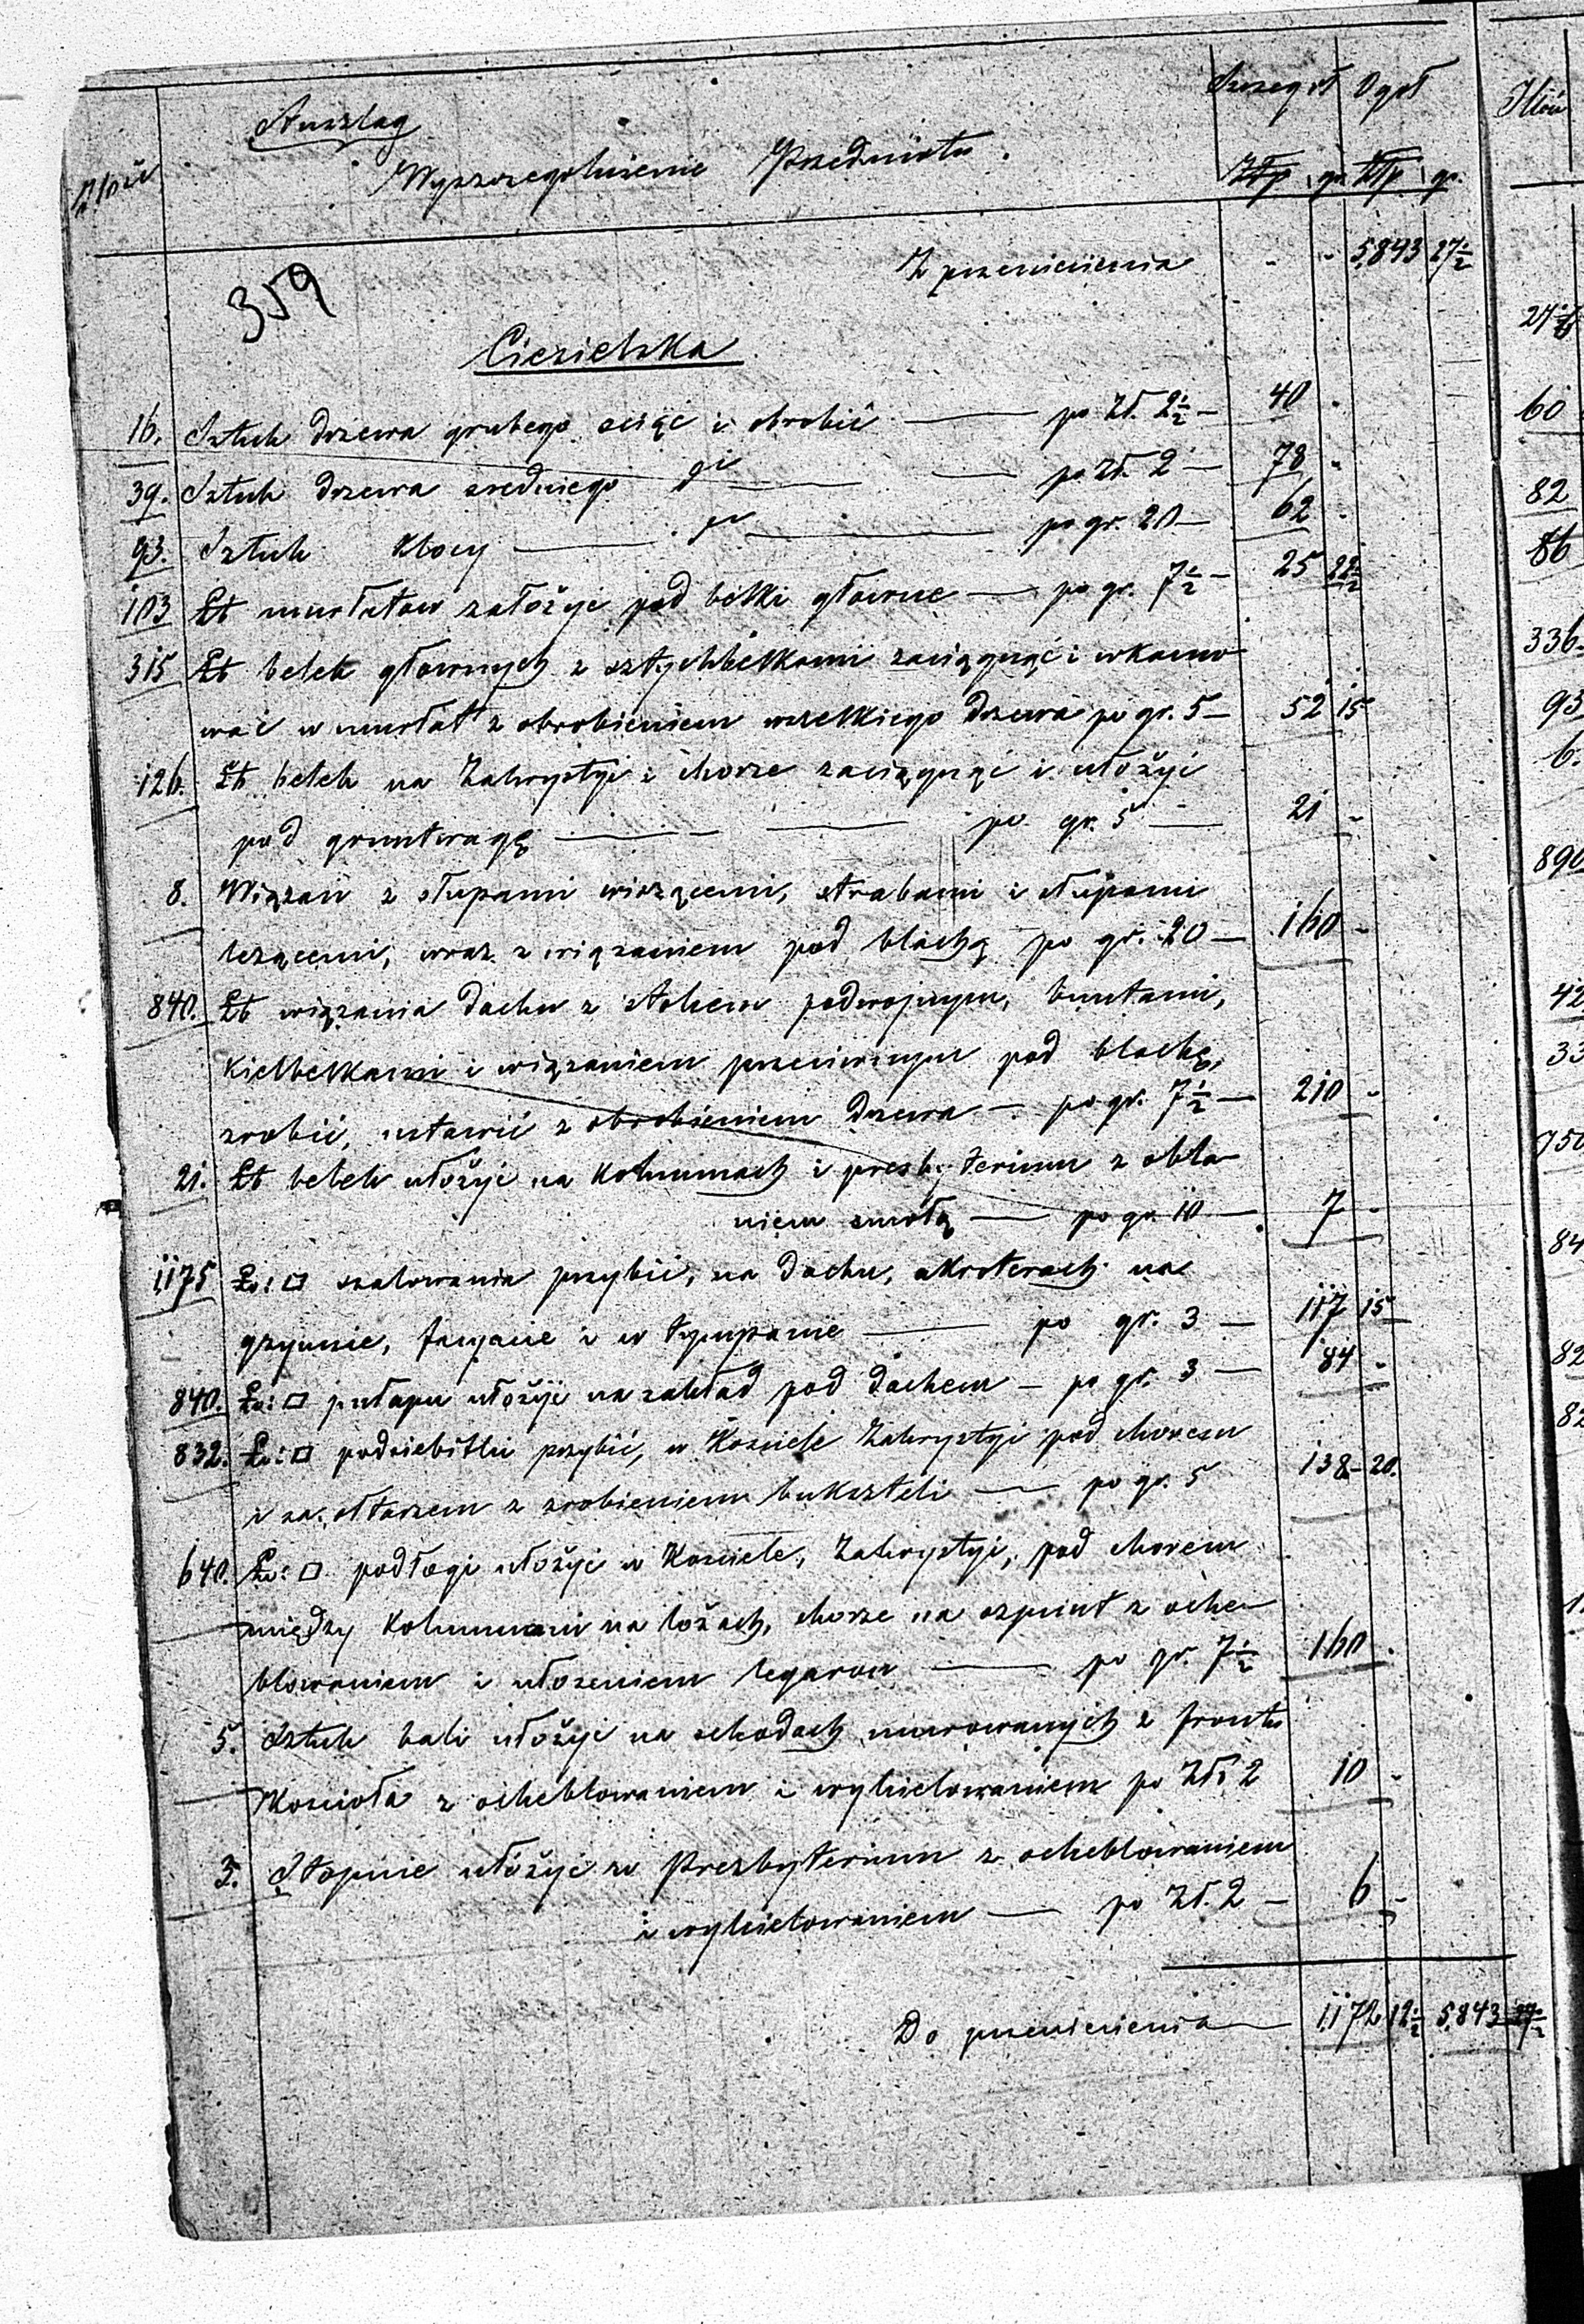 Anszlag
Szczegół Ogół
Ilość Wyszczegolnienie Przedmiotu.
Złp. gr. Złp. gr.
Z przeniesienia - - 5,843 27½
359
Ciesielska
16. Sztuk drzewa grubego sciąć i obrobić — po Zł. 2½ — 40 -
39. Sztuk drzewa sredniego — po Zł. 2 — 78 -
93. Sztuk Klocy — po gr. 20 — 62 -
103 Łt murłatow założyć pod belki głowne — po gr. 7½ — 25 22½
315 Łt belek głownych z sztychbelkami zaciągnąć i wkamo-
wać w murłat z obrobieniem wszelkiego drzewa po gr. 5 — 52 15
126. Łt belek na Zakrystyi i chorze zaciągnąć i ułożyć
pod gruntwagę — po gr. 5 — 21 -
8. Wiązań z słupami wiszącemi, strabami i słupami
leżącemi, wraz z wiązaniem pod blachą po gr. 20 — 160 -
840. Łt wiązania dachu z stolcem podwojnym, buntami,
Kielbelkami i wiązaniem pod blachę,
zrobić, ustawić z obrobieniem drzewa — po gr. 7½ — 210 -
21. Łt belek ułożyć na Kolumnach i presbyterium z obla-
niem smołą — po gr. 10 — 7 -
1,175 Łu: □ szalowania przybić, na dachu, akroterach na
gzymsie, facyacie i w tympanie — po gr. 3 — 117 15
840. Łu: □ pułapu ułożyć na zakład pod dachem — po gr. 3 — 84 -
832. Łu: □ podsiebitki przybić, w Kosciele Zakrystyi pod chorem
i za ołtarzem z zrobieniem bukszteli — po gr. 5 138 - 20.
640. Łu: □ podłogi ułożyć w Kosciele, Zakrystyi, pod chorem
między Kolumnami na lożach, chorze na szpunt z oche-
blowaniem i ułożeniem legarow — po gr. 7½ 160 -
5. Sztuk bali ułożyć na schodach murowanych z frontu
Kościoła z ocheblowaniem i wykielowaniem po Zł. 2 10 -
3. Stopnie ułożyć w Prezbyterium z ocheblowaniem
i wykielowaniem — po Zł. 2 — 6 -
Do przeniesienia — 1,172 12½ 5,843 27½
Ilość
60
82
86
336.
93
6.
890
42
33
750
84
82
82